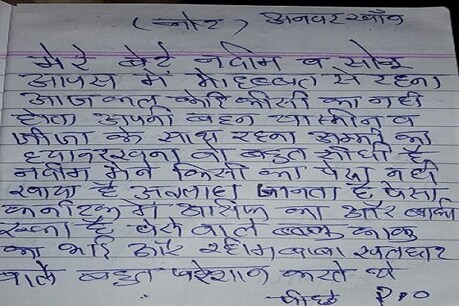 (नोट) अनवर खाँन
मेरे बेटे नदीम व सोनू
आपस में मोहब्बत से रहना
आजकल कोई कीसी का नही
होता अपनी बहन यास्मीन व
जीजा के साथ रहना अम्मी का
ध्यान रखना वो बहुत सीधी है
नदीम मैने किसी का पैसा नही
खाया है अल्लाह जानता है पैसा
कर्नाटक में आसिफ का और बाकी
रुका है पैसे वाले बबलू काकू
का भाई और रहीम बाबा
वाले बहुत परेशान करते थे
पीछे P.O